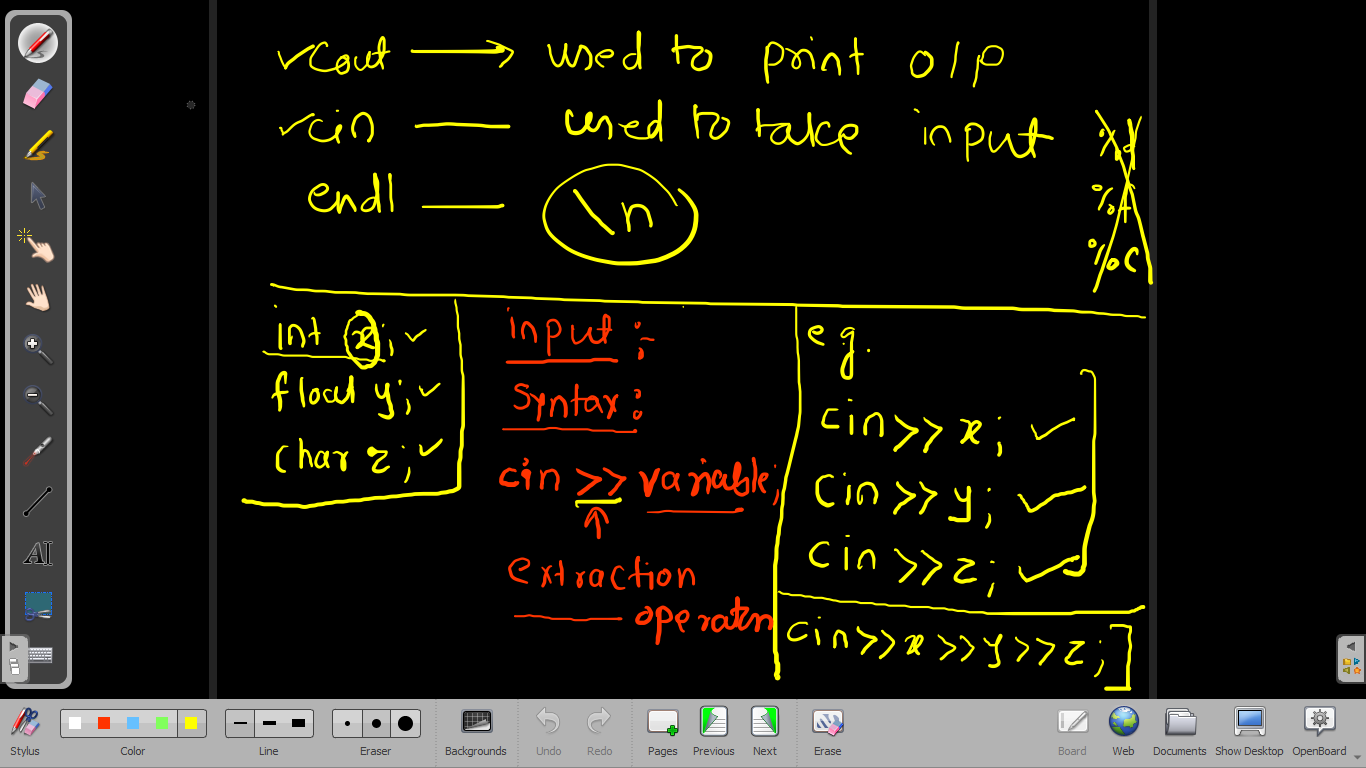 cout → used to print o/p
cin — used to take input
endl — \n
%d
%f
%c
int x;
float y;
char z;
input :-
Syntax:
cin >> variable;
↑
extraction
operator
e.g.
cin >> x;
cin >> y;
cin >> z;
cin >> x >> y >> z;
AI
Stylus
Color
Line
Eraser
Backgrounds
Undo
Redo
Pages
Previous
Next
Erase
Board
Web
Documents
Show Desktop
OpenBoard